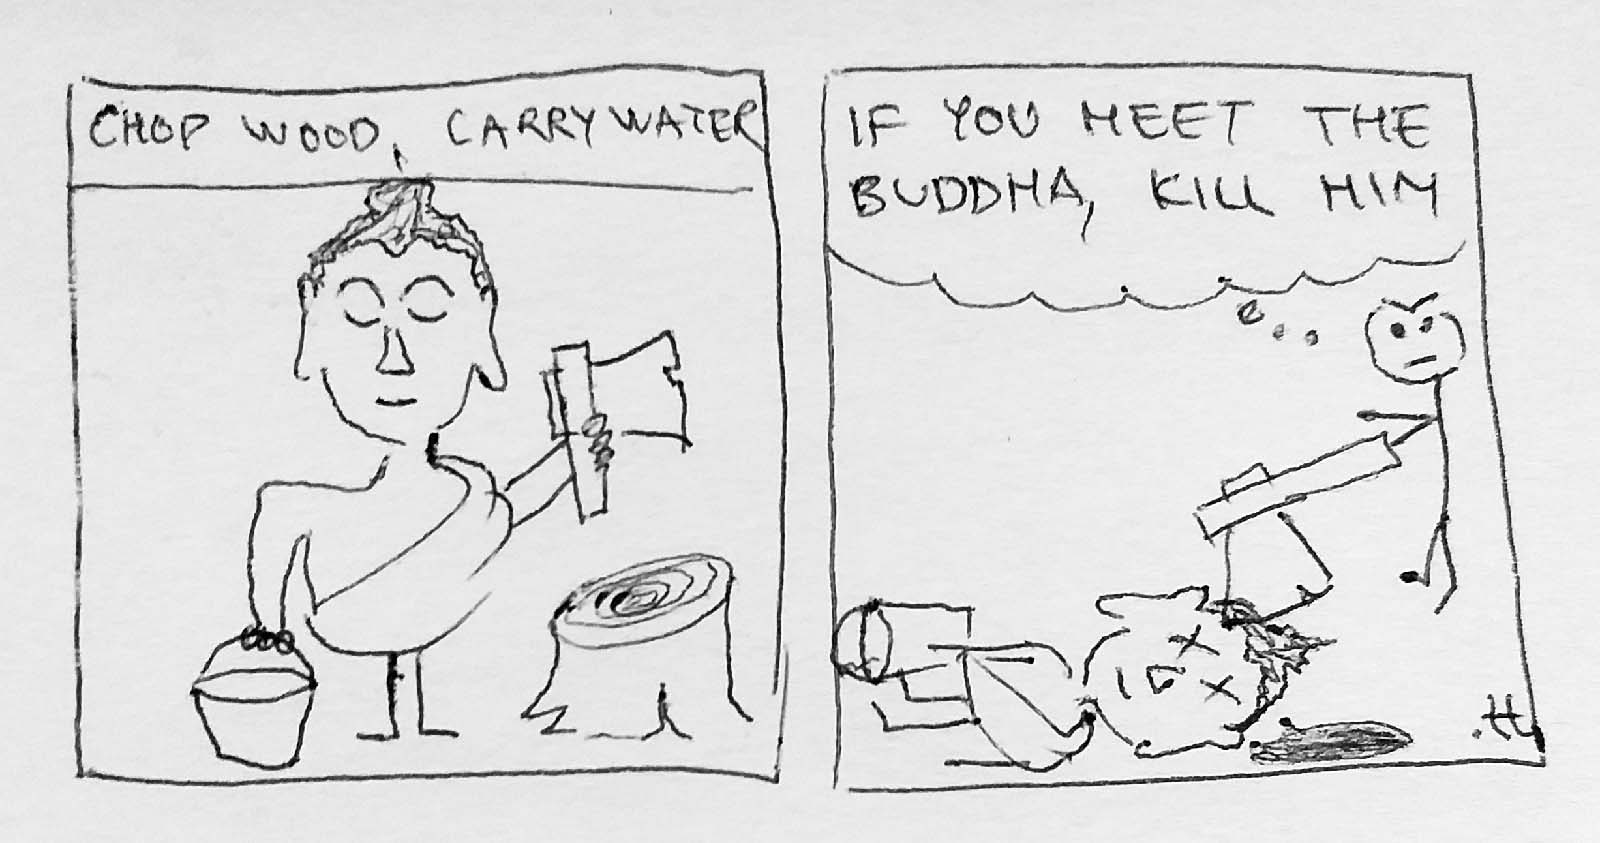 CHOP WOOD, CARRY WATER
IF YOU MEET THE
BUDDHA, KILL HIM
.H